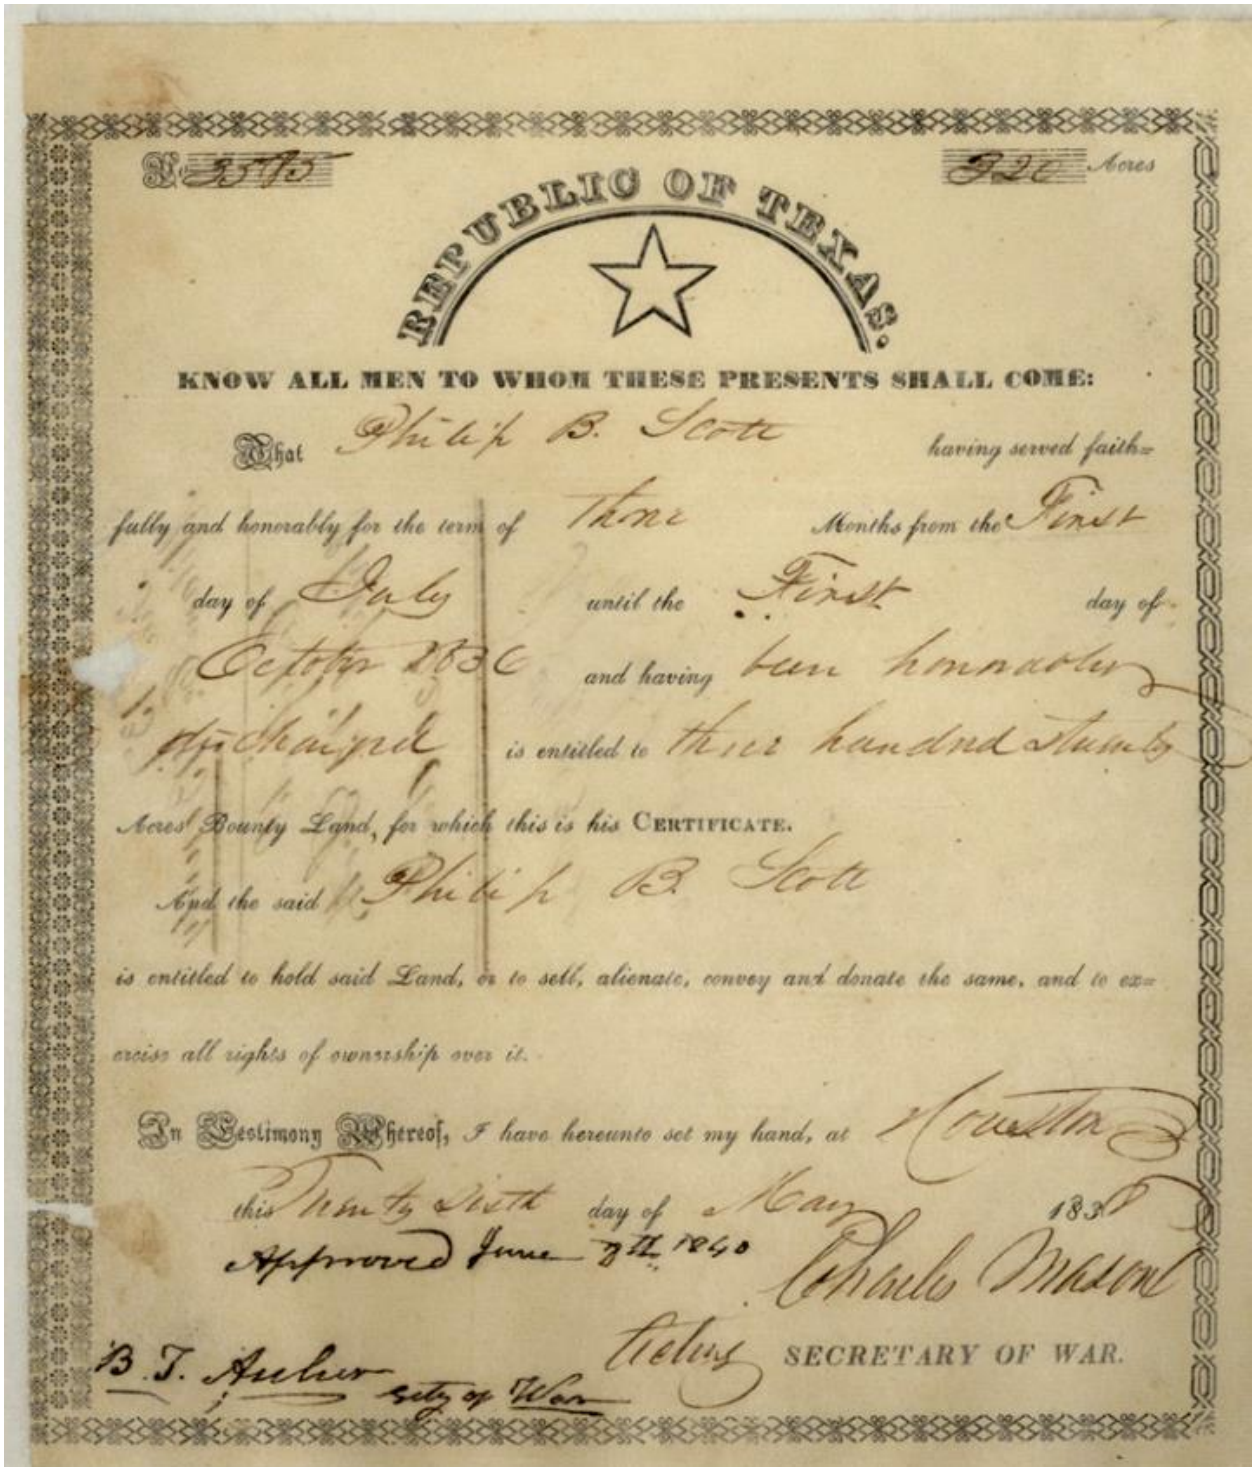 No. 3595 320 Acres
REPUBLIC OF TEXAS.
KNOW ALL MEN TO WHOM THESE PRESENTS SHALL COME:
That Philip B. Scott having served faith=
fully and honorably for the term of three Months from the First
day of July until the First day of
October 1836 and having been honorably
discharged is entitled to three hundred & twenty
Acres Bounty Land, for which this is his CERTIFICATE.
And the said Philip B. Scott
is entitled to hold said Land, or to sell, alienate, convey and donate the same, and to ex=
ercise all rights of ownership over it.
In Testimony Whereof, I have hereunto set my hand, at Houston
this Twenty Sixth day of May 1838
Approved June 1840
Charles Mason
Acting SECRETARY OF WAR.
B. T. Archer
Secty of War